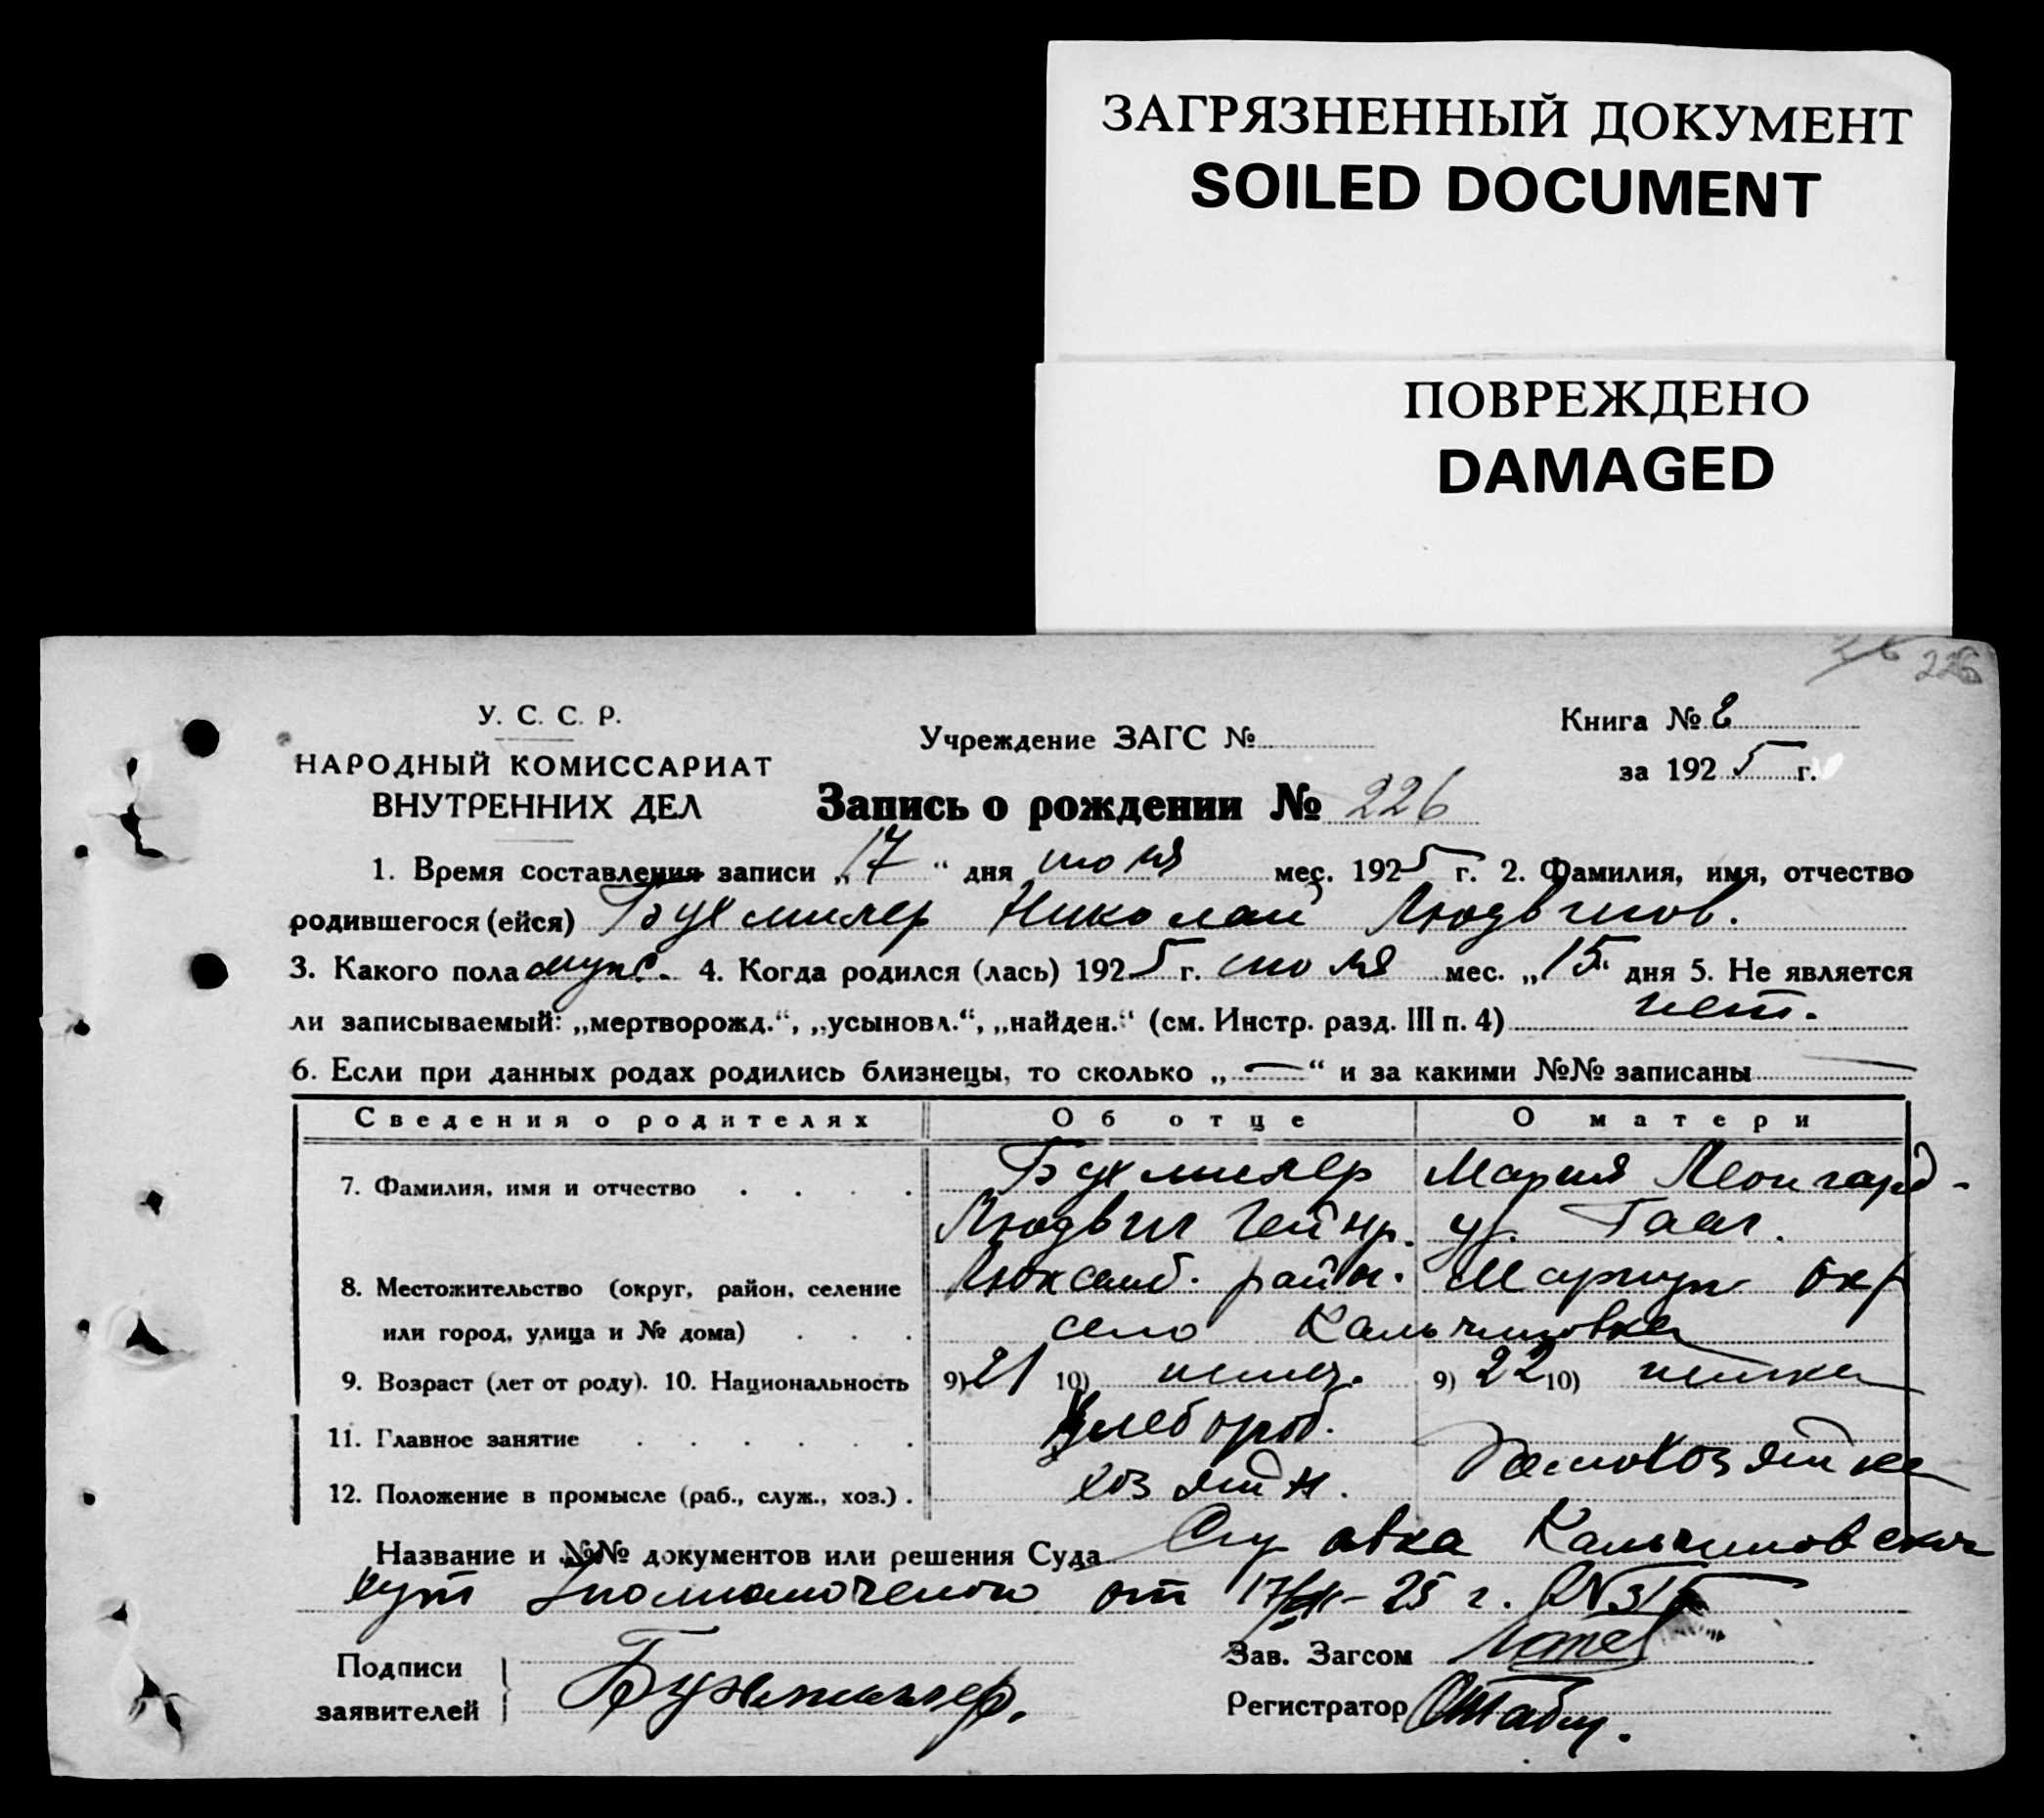 ЗАГРЯЗНЕННЫЙ ДОКУМЕНТ
SOILED DOCUMENT
ПОВРЕЖДЕНО
DAMAGED
226
У. С. С. Р.
НАРОДНЫЙ КОМИССАРИАТ
ВНУТРЕННИХ ДЕЛ
Учреждение ЗАГС №
Книга № 2
за 1925 г.
Запись о рождении № 226
1. Время составления записи „17“ дня июля мес. 1925 г. 2. Фамилия, имя, отчество
родившегося (ейся) Бухмилер Николай Людвигов.
3. Какого пола муж. 4. Когда родился (лась) 1925 г. июля мес. „15“ дня 5. Не является
ли записываемый: „мертворожд.“, „усыновл.“, „найден.“ (см. Инстр. разд. III п. 4) нет.
6. Если при данных родах родились близнецы, то сколько „—“ и за какими №№ записаны —
Сведения о родителях Об отце О матери
7. Фамилия, имя и отчество Бухмилер Мария Леонгард-
Людвиг Гейнр. ур. Гааг.
8. Местожительство (округ, район, селение Люксемб. район. Мариуп окр
или город, улица и № дома) село Кальчиновка
9. Возраст (лет от роду). 10. Национальность 9) 21 10) немец. 9) 22 10) немка
11. Главное занятие хлебороб. Домохозяйка
12. Положение в промысле (раб., служ., хоз.) хозяин.
Название и №№ документов или решения Суда Кальчиновском
от 17/ -25 г. №
Подписи
заявителей Бухмиллер.
Зав. Загсом
Регистратор